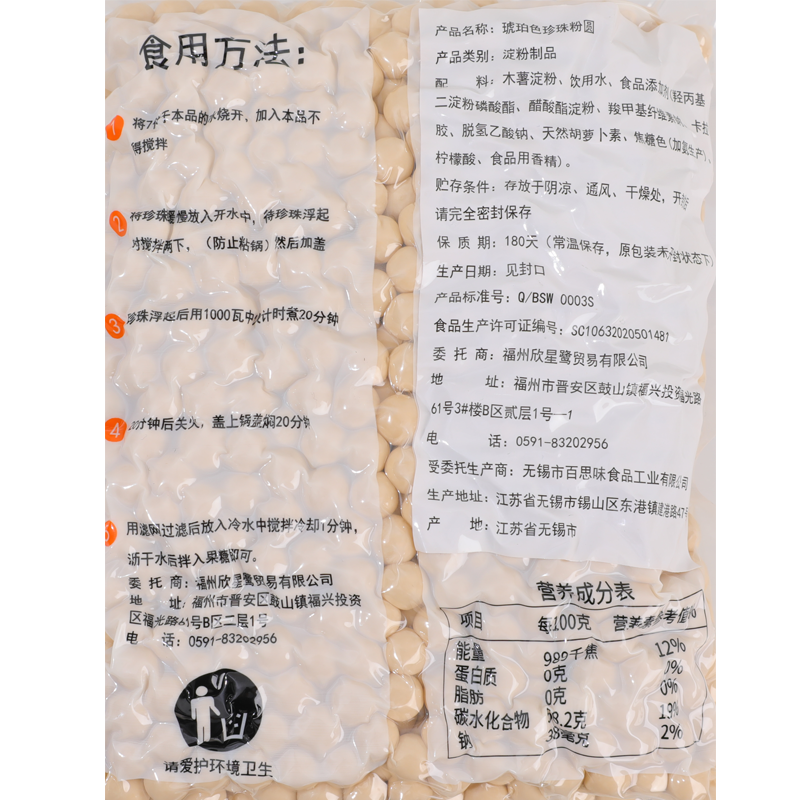 食用方法:
1
于本品的水烧开，加入本品不
得搅拌
2
将珍珠慢慢放入开水中，待珍珠浮起
时搅拌两下，（防止粘锅）然后加盖
3
珍珠浮起后用1000瓦中火计时煮20分钟
4
20分钟后关火，盖上锅盖焖20分钟
5
用滤网过滤后放入冷水中搅拌冷却1分钟，
沥干水后拌入果糖即可。
委 托 商：福州欣星鹭贸易有限公司
地 址：福州市晋安区鼓山镇福兴投资
区福光路61号B区二层1号
电 话：0591-83202956
请爱护环境卫生
产品名称：琥珀色珍珠粉圆
产品类别：淀粉制品
配 料：木薯淀粉、饮用水、食品添加剂(羟丙基
二淀粉磷酸酯、醋酸酯淀粉、羧甲基纤维素钠、卡拉
胶、脱氢乙酸钠、天然胡萝卜素、焦糖色(加氨生产)、
柠檬酸、食品用香精)。
贮存条件：存放于阴凉、通风、干燥处，开
请完全密封保存
保 质 期：180天（常温保存，原包装未开封状态下）
生产日期：见封口
产品标准号：Q/BSW 0003S
食品生产许可证编号：SC10632020501481
委 托 商：福州欣星鹭贸易有限公司
地 址：福州市晋安区鼓山镇福兴投资区福光路
61号3#楼B区贰层1号—1
电 话：0591-83202956
受委托生产商：无锡市百思味食品工业有限公司
生产地址：江苏省无锡市锡山区东港镇建港路47号
产 地：江苏省无锡市
营养成分表
项目 每100克 营养素参考值%
能量 999千焦 12%
蛋白质 0克 0%
脂肪 0克 0%
碳水化合物 58.2克 19%
钠 38毫克 2%